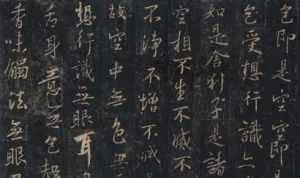 色即是空空即是
色受想行識亦
如是舍利子是諸
空相不生不滅不
不淨不增不減
故空中無色無
想行識無眼耳
舌身意無色聲
香味觸法無眼界